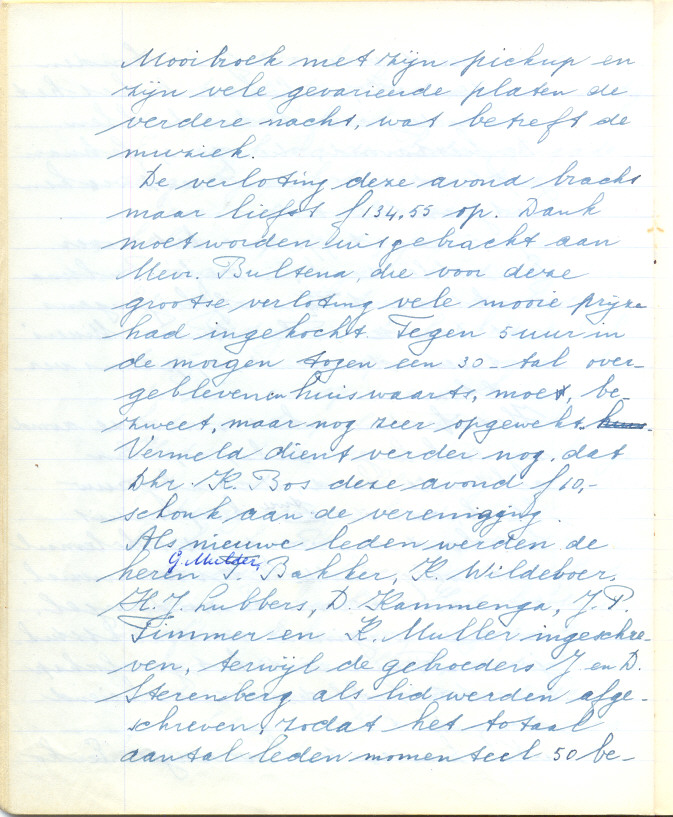 Mooibroek met zijn pickup en
zijn vele gevarieende platen de
verdere nacht, wat betreft de
muziek.
De verloting deze avond bracht
maar liefst f 134,55 op. Dank
moet worden uitgebracht aan
Mevr. Bultena, die voor deze
grootse verloting vele mooie prijzen
had ingekocht. Tegen 5 uur in
de morgen togen een 30-tal over-
geblevenen huiswaarts, moe, be-
zweet, maar nog zeer opgewekt.
Vermeld dient verder nog, dat
Dhr. K. Bos deze avond f 10,-
schonk aan de vereniging.
Als nieuwe leden werden de
G. Mulder,
heren T. Bakker, K. Wildeboer,
H.J. Lubbers, D. Kammenga, J.P.
Timmer en K. Muller ingeschre-
ven, terwijl de gebroeders J. en D.
Sterenberg als lid werden afge-
schreven, zodat het totaal
aantal leden momenteel 50 be-